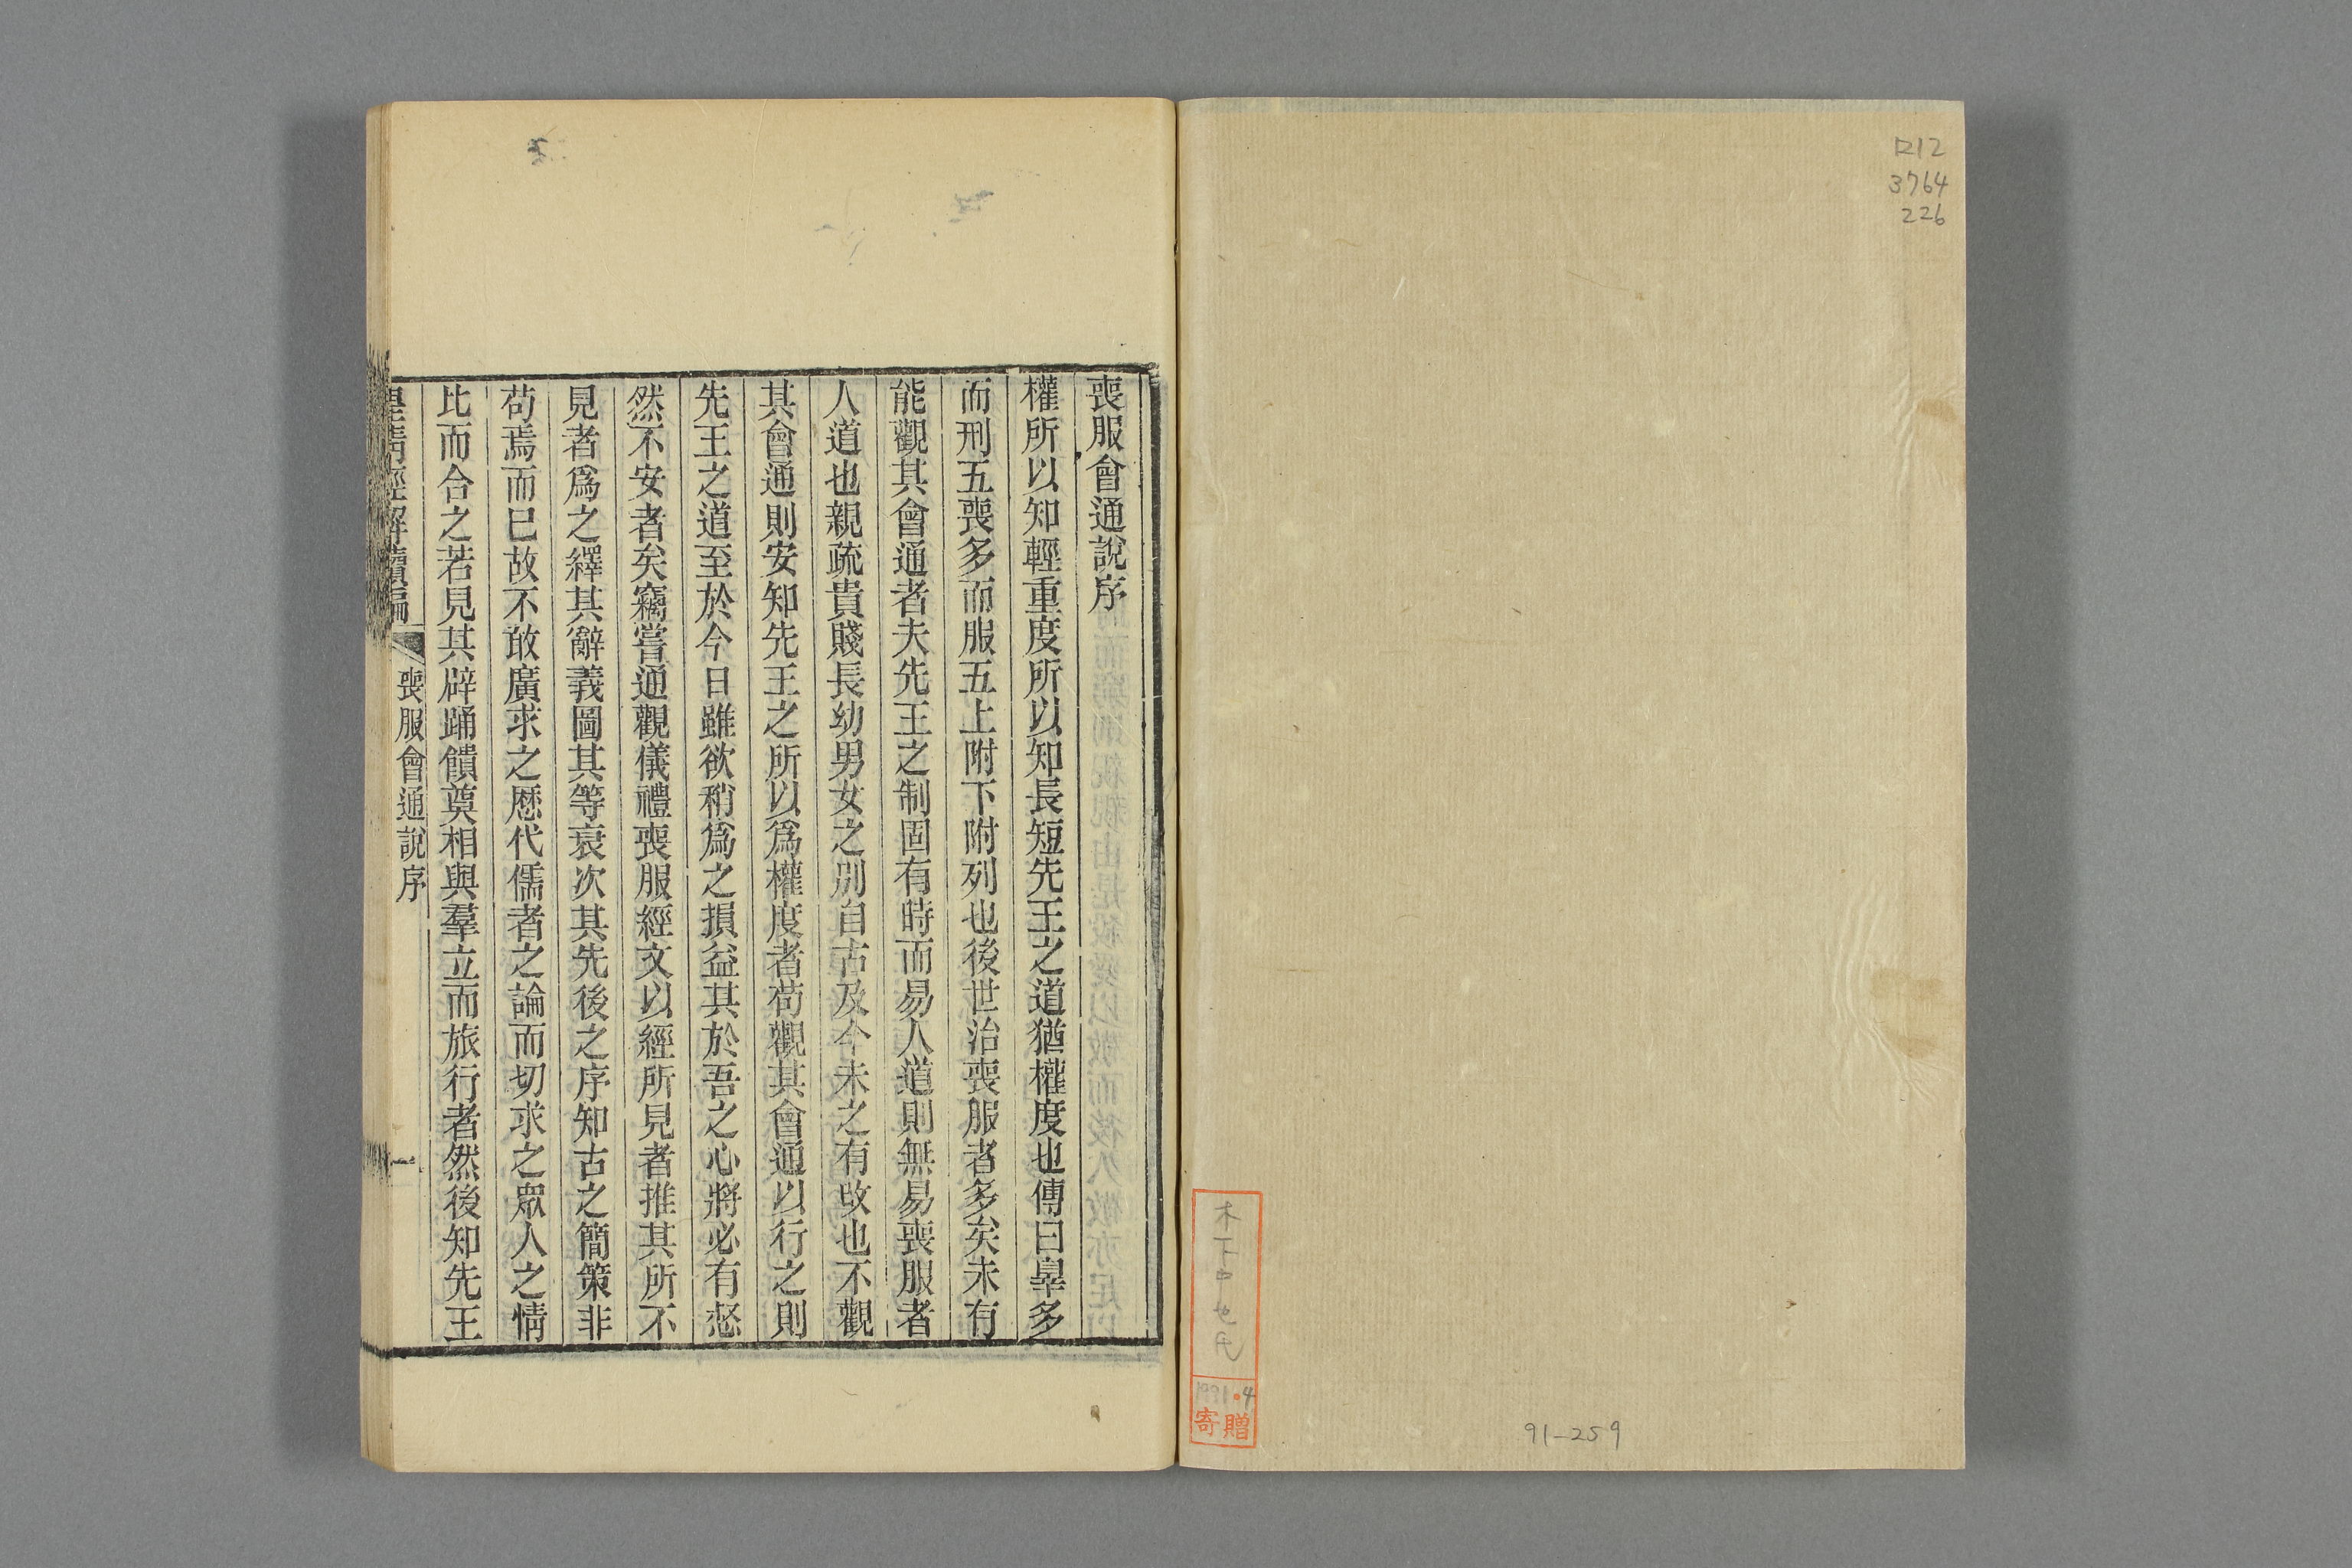 口12
3764
226
91-259
4
寄贈
喪服會通說序
權所以知輕重度所以知長短先王之道猶權度也傳曰辠多
而刑五喪多而服五上附下附列也後世治喪服者多矣未有
能觀其會通者夫先王之制固有時而易人道則無易喪服者
人道也親疏貴賤長幼男女之別自古及今未之有攺也不觀
其會通則安知先王之所以爲權度者苟觀其會通以行之則
先王之道至於今日雖欲稍爲之損益其於吾之心將必有愸
然不安者矣竊嘗通觀儀禮喪服經文以經所見者推其所不
見者爲之繹其辭義圖其等衰次其先後之序知古之簡策非
苟焉而已故不敢廣求之歷代儒者之論而切求之眾人之情
比而合之若見其辟踊饋奠相與羣立而旅行者然後知先王
皇淸經解續編
喪服會通說序
一